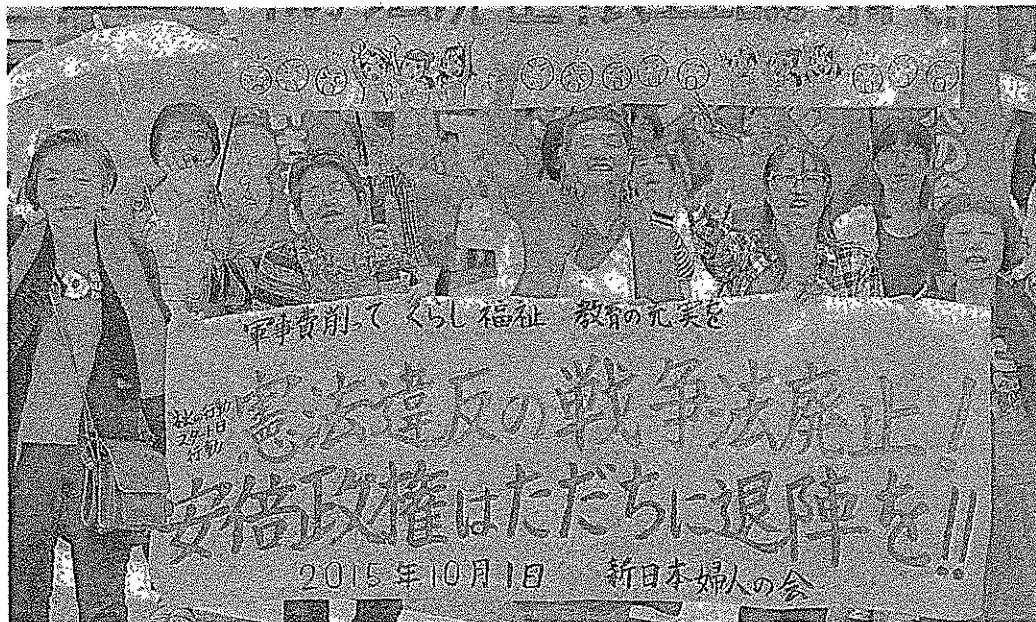 軍事費削って くらし 福祉 教育の充実を
憲法違反の戦争法廃止!
安倍政権はただちに退陣を!!
2015年10月1日 新日本婦人の会